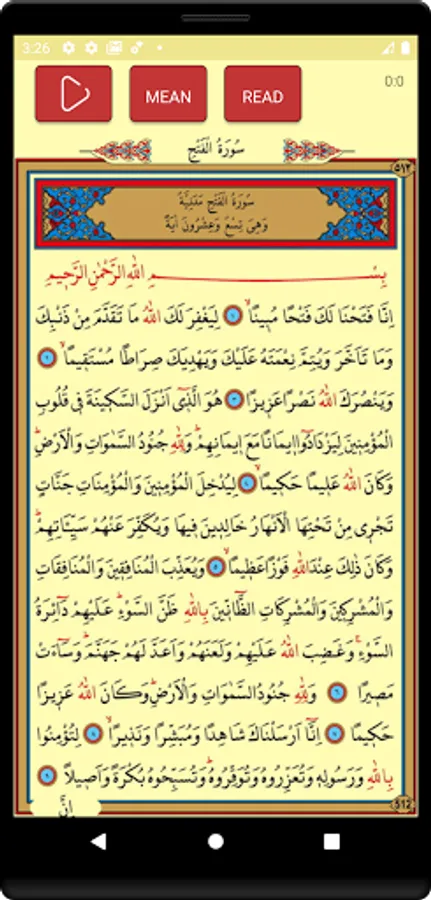 3:26
MEAN
READ
0:0
سُورَةُ الْفَتْحِ
٥١٢
سُورَةُ الْفَتْحِ مَدَنِيَّةٌ
وَهِىَ تِسْعٌ وَعِشْرُونَ اٰيَةً
بِسْــــمِ اللهِ الرَّحْمٰنِ الرَّحِيمِ
اِنَّا فَتَحْنَا لَكَ فَتْحًا مُبِينًاۙ ١ لِيَغْفِرَ لَكَ اللهُ مَا تَقَدَّمَ مِنْ ذَنْبِكَ
وَمَا تَاَخَّرَ وَيُتِمَّ نِعْمَتَهُ عَلَيْكَ وَيَهْدِيَكَ صِرَاطًا مُسْتَقِيمًاۙ ٢
وَيَنْصُرَكَ اللهُ نَصْرًا عَزِيزًا ٣ هُوَ الَّذِٓى اَنْزَلَ السَّكِينَةَ فِى قُلُوبِ
الْمُؤْمِنِينَ لِيَزْدَادُٓوا اِيمَانًا مَعَ اِيمَانِهِمْۜ وَلِلّٰهِ جُنُودُ السَّمٰوَاتِ وَالْاَرْضِۜ
وَكَانَ اللهُ عَلِيمًا حَكِيمًاۙ ٤ لِيُدْخِلَ الْمُؤْمِنِينَ وَالْمُؤْمِنَاتِ جَنَّاتٍ
تَجْرِى مِنْ تَحْتِهَا الْاَنْهَارُ خَالِدِينَ فِيهَا وَيُكَفِّرَ عَنْهُمْ سَيِّـَٔاتِهِمْۜ
وَكَانَ ذٰلِكَ عِنْدَ اللهِ فَوْزًا عَظِيمًاۙ ٥ وَيُعَذِّبَ الْمُنَافِقِينَ وَالْمُنَافِقَاتِ
وَالْمُشْرِكِينَ وَالْمُشْرِكَاتِ الظَّٓانِّينَ بِاللهِ ظَنَّ السَّوْءِۜ عَلَيْهِمْ دَٓائِرَةُ
السَّوْءِۚ وَغَضِبَ اللهُ عَلَيْهِمْ وَلَعَنَهُمْ وَاَعَدَّ لَهُمْ جَهَنَّمَۜ وَسَٓاءَتْ
مَصِيرًا ٦ وَلِلّٰهِ جُنُودُ السَّمٰوَاتِ وَالْاَرْضِۜ وَكَانَ اللهُ عَزِيزًا
حَكِيمًا ٧ اِنَّٓا اَرْسَلْنَاكَ شَاهِدًا وَمُبَشِّرًا وَنَذِيرًاۙ ٨ لِتُؤْمِنُوا
بِاللهِ وَرَسُولِهِ وَتُعَزِّرُوهُ وَتُوَقِّرُوهُۜ وَتُسَبِّحُوهُ بُكْرَةً وَاَصِيلًا ٩
اِنَّ
512